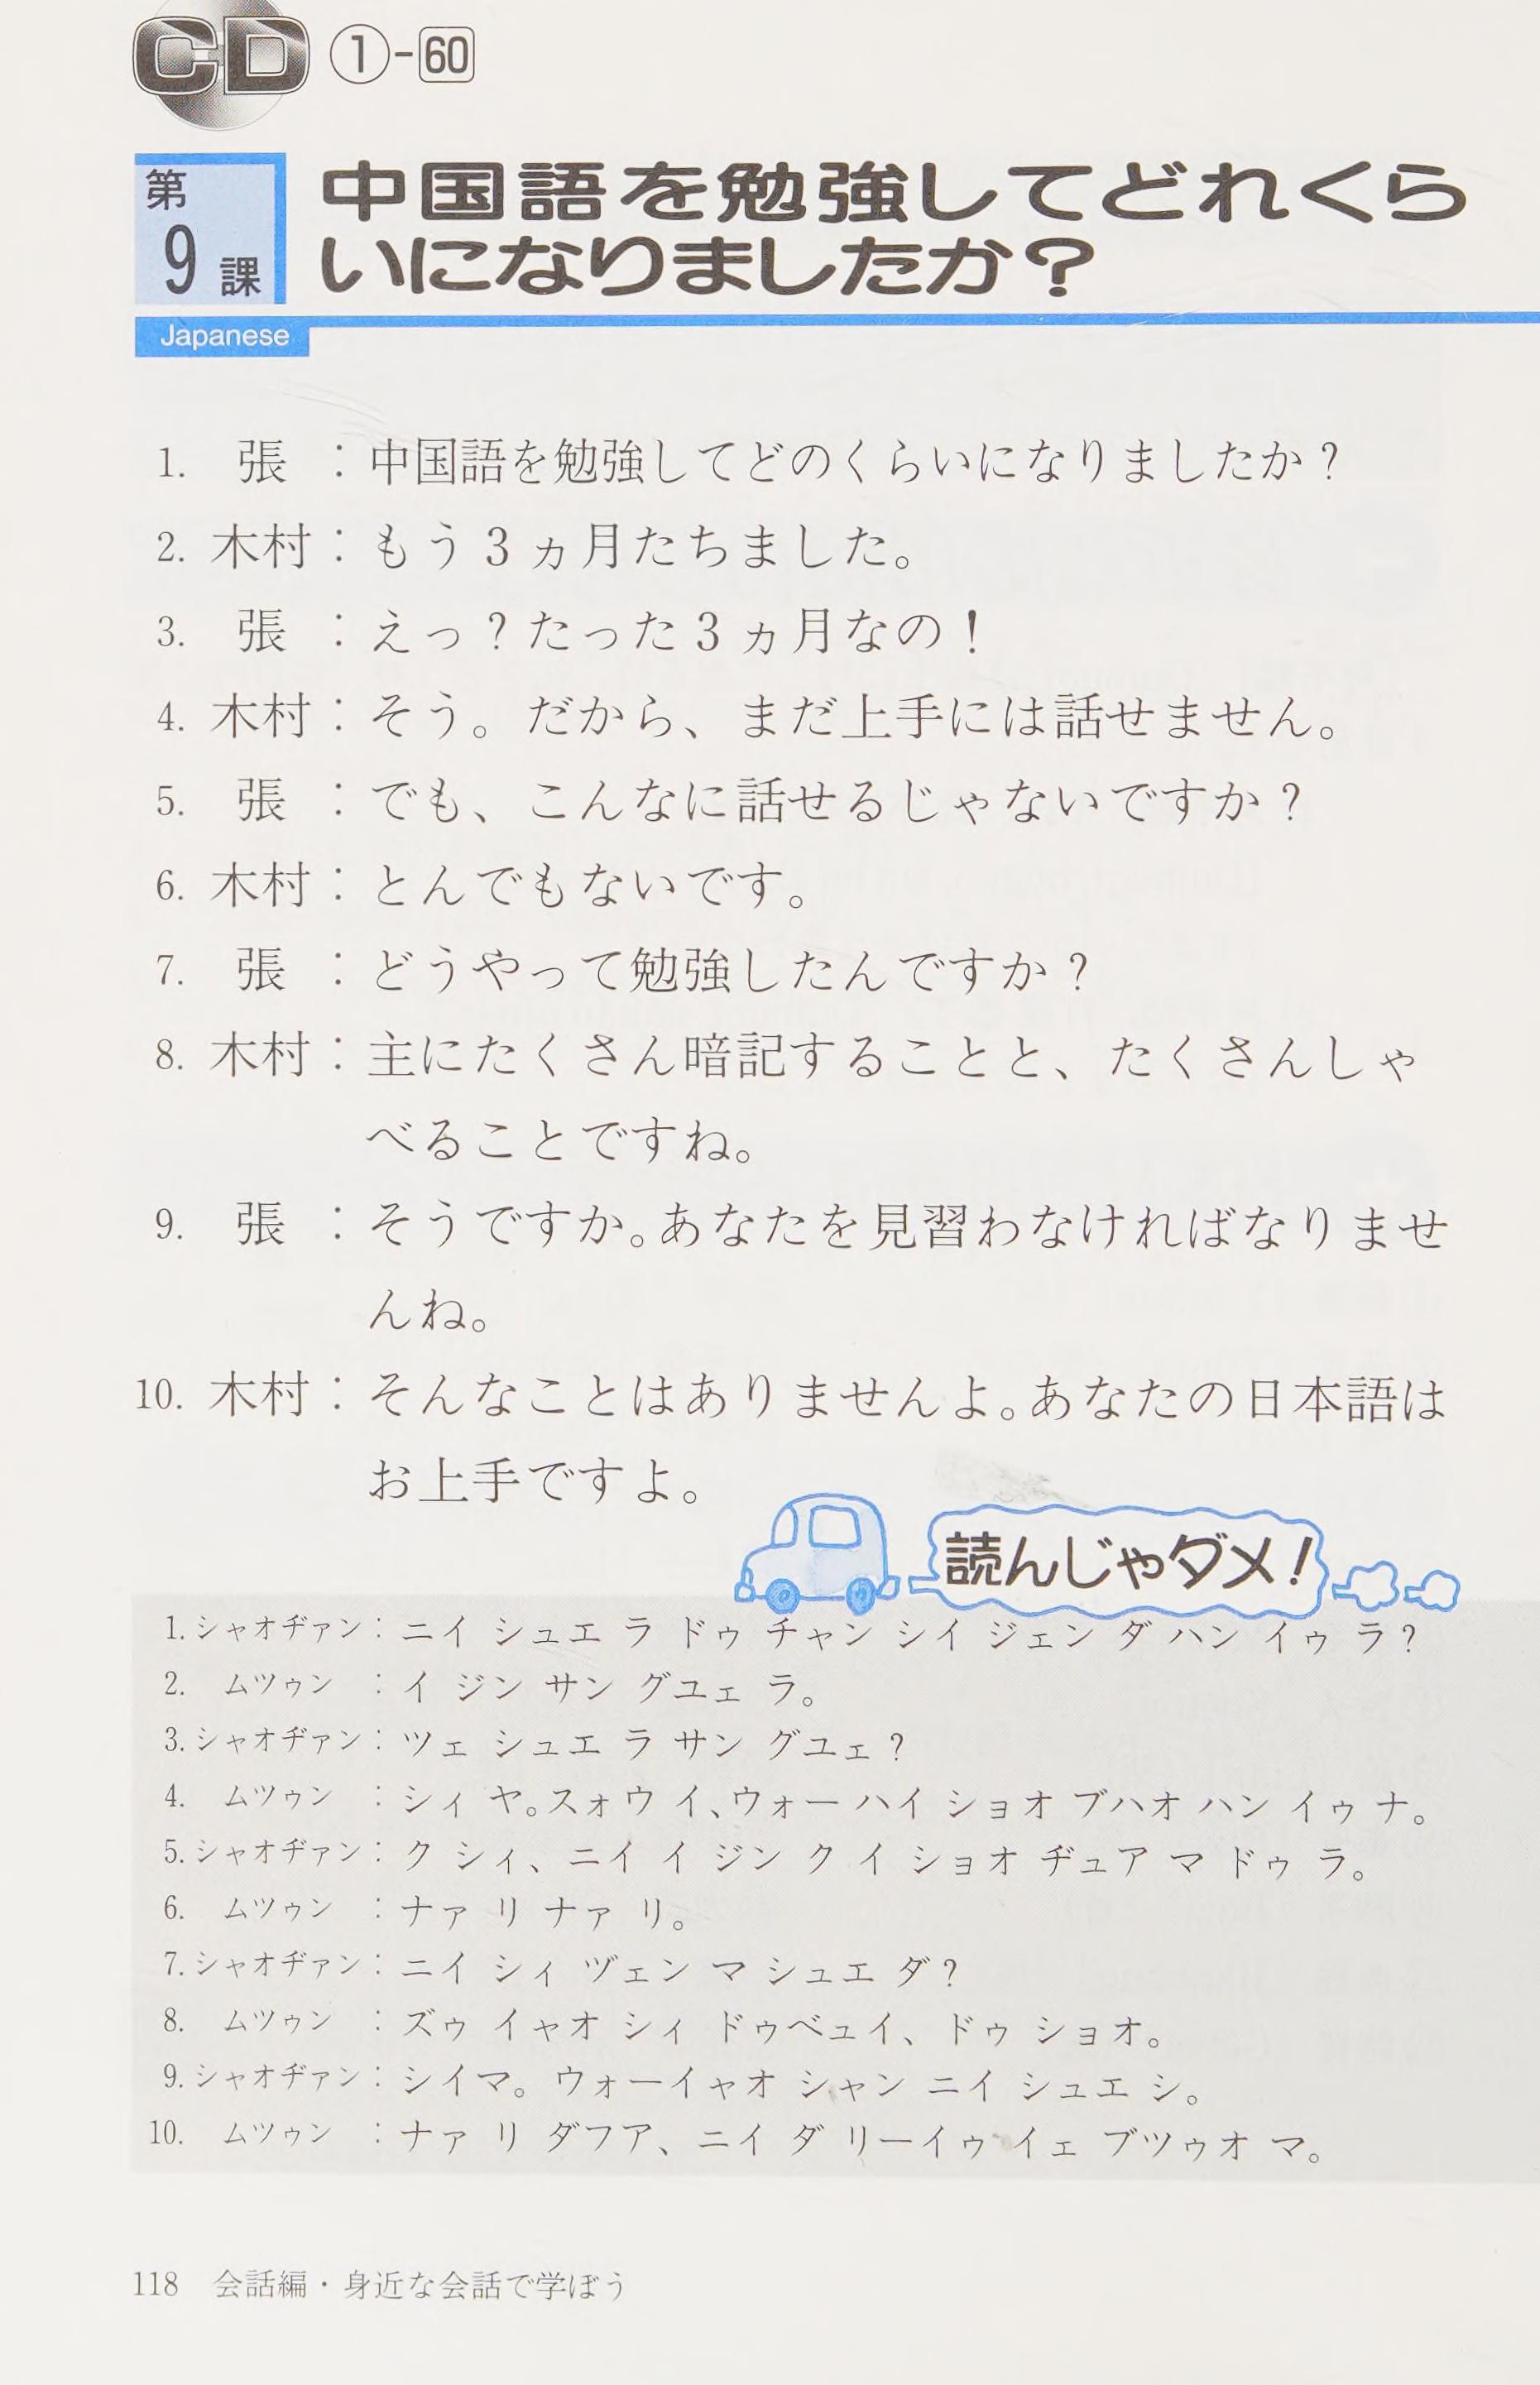 CD ①-60
第9課
中国語を勉強してどれくら
いになりましたか？
Japanese
1. 張：中国語を勉強してどのくらいになりましたか？
2. 木村：もう３ヵ月たちました。
3. 張：えっ？たった３ヵ月なの！
4. 木村：そう。だから、まだ上手には話せません。
5. 張：でも、こんなに話せるじゃないですか？
6. 木村：とんでもないです。
7. 張：どうやって勉強したんですか？
8. 木村：主にたくさん暗記することと、たくさんしゃ
べることですね。
9. 張：そうですか。あなたを見習わなければなりませ
んね。
10. 木村：そんなことはありませんよ。あなたの日本語は
お上手ですよ。
読んじゃダメ！
1. シャオヂァン：ニイ シュエ ラ ドゥ チャン シイ ジェン ダ ハン イゥ ラ？
2. ムツゥン：イ ジン サン グユェ ラ。
3. シャオヂァン：ツェ シュエ ラ サン グユェ？
4. ムツゥン：シィ ヤ。スォウ イ、ウォー ハイ ショオ ブハオ ハン イゥ ナ。
5. シャオヂァン：ク シィ、ニイ イ ジン ク イ ショオ ヂュア マ ドゥ ラ。
6. ムツゥン：ナァ リ ナァ リ。
7. シャオヂァン：ニイ シィ ヅェン マ シュエ ダ？
8. ムツゥン：ズゥ イャオ シィ ドゥベュイ、ドゥ ショオ。
9. シャオヂァン：シイマ。ウォーイャオ シャン ニイ シュエ シ。
10. ムツゥン：ナァ リ ダフア、ニイ ダ リーイゥ イェ ブツゥオ マ。
118 会話編・身近な会話で学ぼう